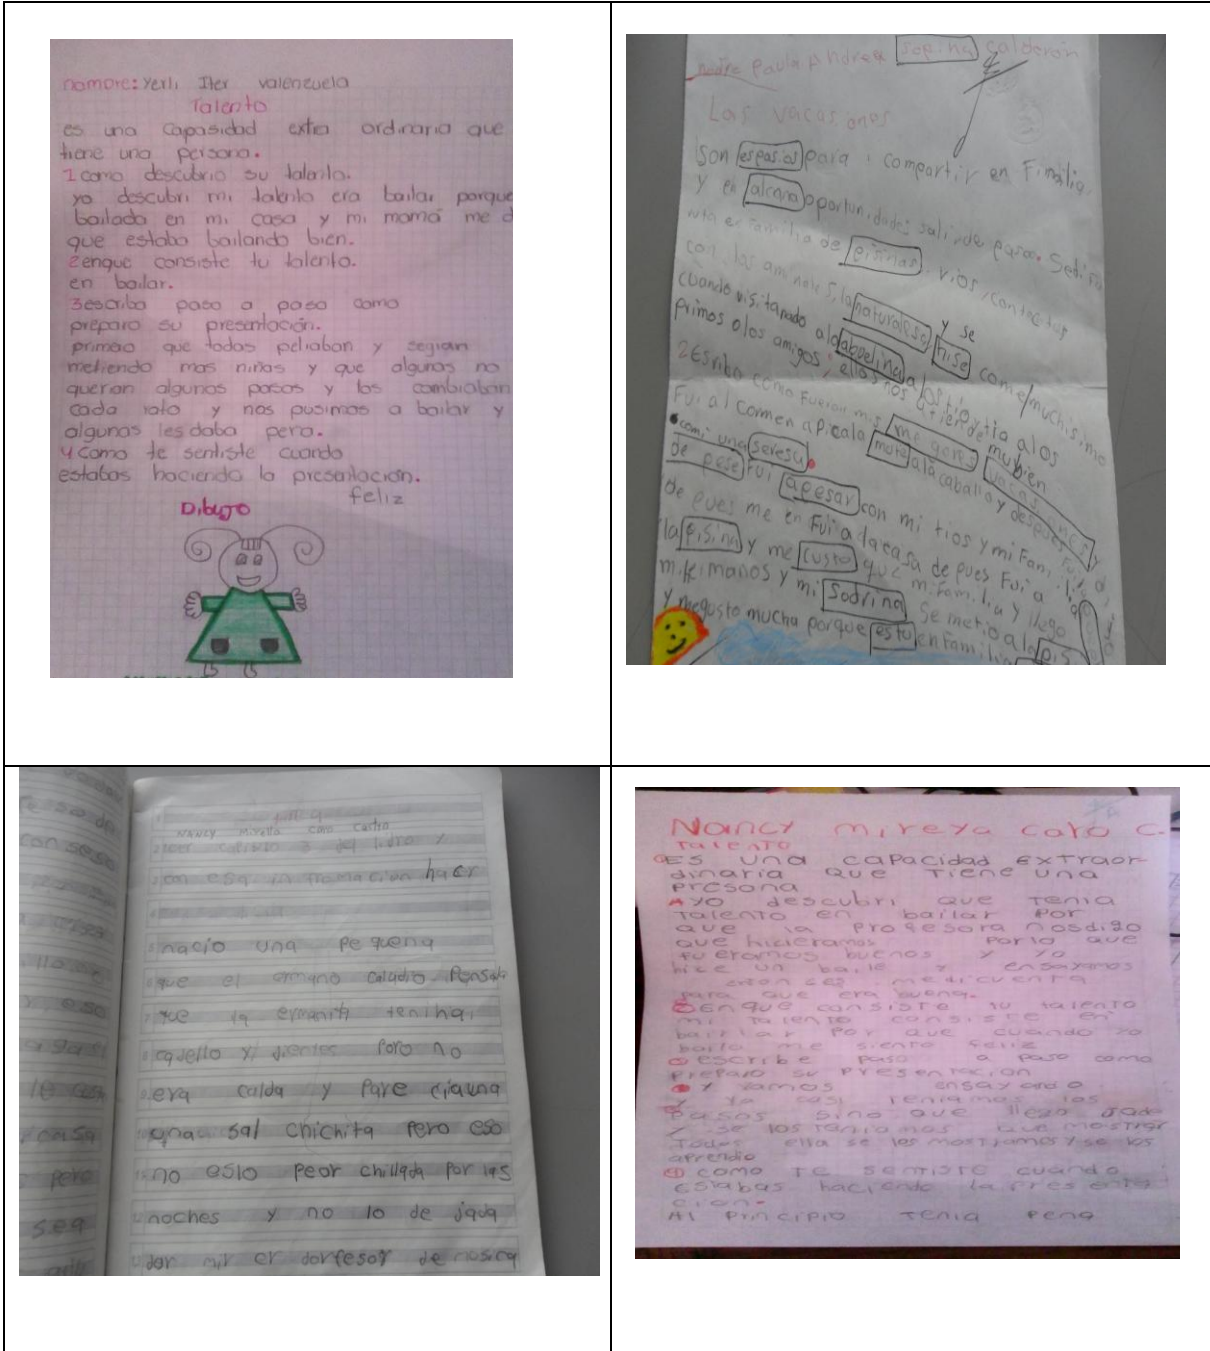 nombre: Yerli Iter valenzuela
Talento
es una capasidad extra ordinaria que
tiene una persona.
1 como descubrio su talento.
yo descubri mi talento era bailar porque
bailada en mi casa y mi mamá me d
que estaba bailando bien.
2 enque consiste tu talento.
en bailar.
3 escriba paso a paso como
preparo su presentación.
primero que todas peliaban y segian
metiendo mas niñas y que algunas no
querian algunos pasos y los cambiaban
cada rato y nos pusimos a bailar y
algunas les daba pena.
4 como te sentiste cuando
estabas haciendo la presentación.
feliz
Dibujo
Paula Andrea sopina calderón
Las vacasones
Son espasios para compartir en Fimilia,
y en alcana oportunidades salir de paseo. Sedisfr
uta en familia de pisinas, rios, contactar
con las animales, la naturalesa y se
hise come muchisimo
cuando visitanado ala abuelina a los tio y tia a los
primos olos amigos, ellos nos atiende muy bien
2 Escriba como Fueron mis me gores vacasiones
Fui al comen apicala mote ala caballo y despues Fui a
comi una seresu.
de pese Fui apesar con mi tios y mi Familia
de pues me en Fui a la casa de pues Fui a
la pisina y me custo que mi Familia y llego
mi ermanos y mi Sodrina Se metio a la pis
y megusto mucha porque estu en familia
NANCY Mireya caro Castro
leer capitulo 3 del libro y
con esa informacion hacer
nacio una pequena
que el ermano caladro. Pensaba
que la ermanita teniha,
cabello y dientes Pero no
era calda y Pare ciauna
unaa sal chichita Pero eso
no eslo peor chillada por las
noches y no lo de jaba
dor mir er dorfesor de nusica
Nancy mireya caro C.
Talento
Es una capacidad extraor-
dinaria que tiene una
presona
A yo descubri que tenia
talento en bailar por
que la profesora nosdigo
que hicieramos porlo que
fueramos buenos y yo
hice un baile y ensayamos
entonses medicuenta
para que era buena.
En que consiste tu talento
mi talento consiste en
bailar por que cuando yo
bailo me siento feliz
escribe paso a paso como
preparo su presentacion
y vamos ensayando
y ya casi teniamos los
pasos sino que llego
y se los teniamos que mostrar
todos ella se les mostramos y se los
aprendio
como te sentiste cuando
estabas haciendo la presenta
cion.
Al principio tenia pena